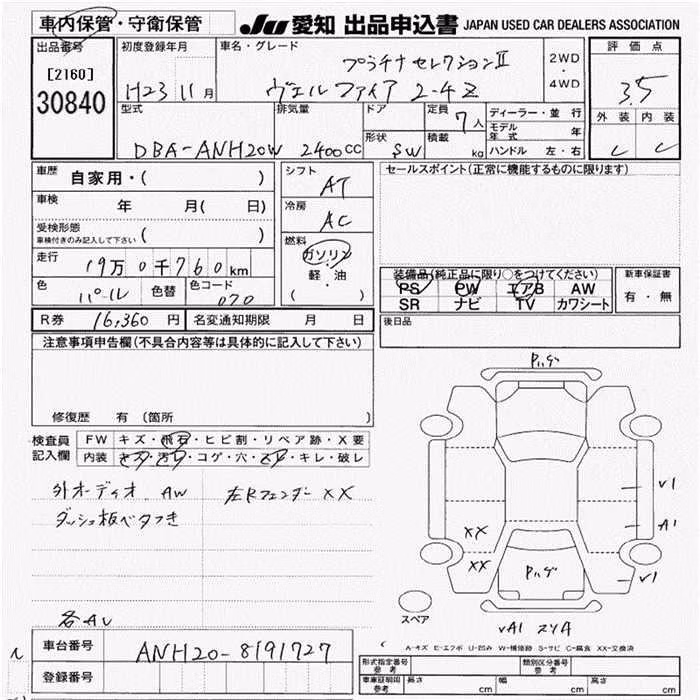 車内保管・守衛保管
JU 愛知 出品申込書 JAPAN USED CAR DEALERS ASSOCIATION
出品番号
[2160]
30840
初度登録年月
H23 11月
車名・グレード
プラチナセレクションⅡ
ヴェルファイア 2-4Z
2WD
・
4WD
評価点
3.5
外装 内装
C C
型式
DBA-ANH20W
排気量
2400cc
ドア
形状
SW
定員
7人
積載
kg
ディーラー・並行
モデル年式 年
ハンドル 左・右
車歴 自家用・( )
車検 年 月( 日)
受検形態
車検付きのみ記入して下さい ( )
走行
19万0千760km
色
パール
色替
色コード
070
シフト
AT
冷房
AC
燃料
ガソリン
軽・油
( )
セールスポイント(正常に機能するものに限ります)
装備品(純正品に限り○をつけてください)
PS PW エアB AW
SR ナビ TV カワシート
新車保証書
有・無
R券 16,360円 名変通知期限 月 日
後日品
注意事項申告欄(不具合内容等は具体的に記入して下さい)
修復歴 有 (箇所
検査員
記入欄
FW キズ・飛石・ヒビ割・リペア跡・X要
内装 キズ・汚れ・コゲ・穴・スレ・キレ・破レ
外オーディオ AW 左Rフェンダー XX
ダッシュ板ベタつき
各AU
車台番号 ANH20-8191727
登録番号
バゲ
V1
A1
XX
XX
バゲ
V1
スペア
VA1
A-キズ E-エクボ U-凹み W-補修跡 S-サビ C-腐食 XX-交換済
形式指定番号
参考
類別区分番号
参考
車庫証明用
参考
長さ cm 幅 cm 高さ cm